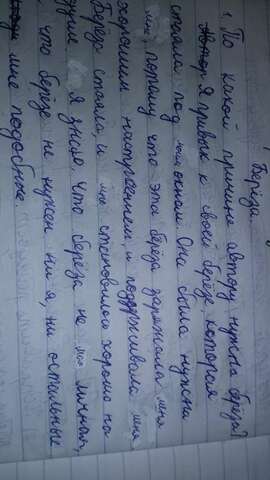 Берёза
1. По какой причине автору нужна берёза?
Я привык к своей берёзе, которая
стояла под моим окном. Она была нужна
мне, потому что эта берёза заряжала меня
хорошим настроением, и поддерживала меня
Берёза стояла, и мне становилось хорошо на
душе. Я знаю, что берёза не моя личная,
что берёзе не нужен ни я, ни остальные
мне подобные